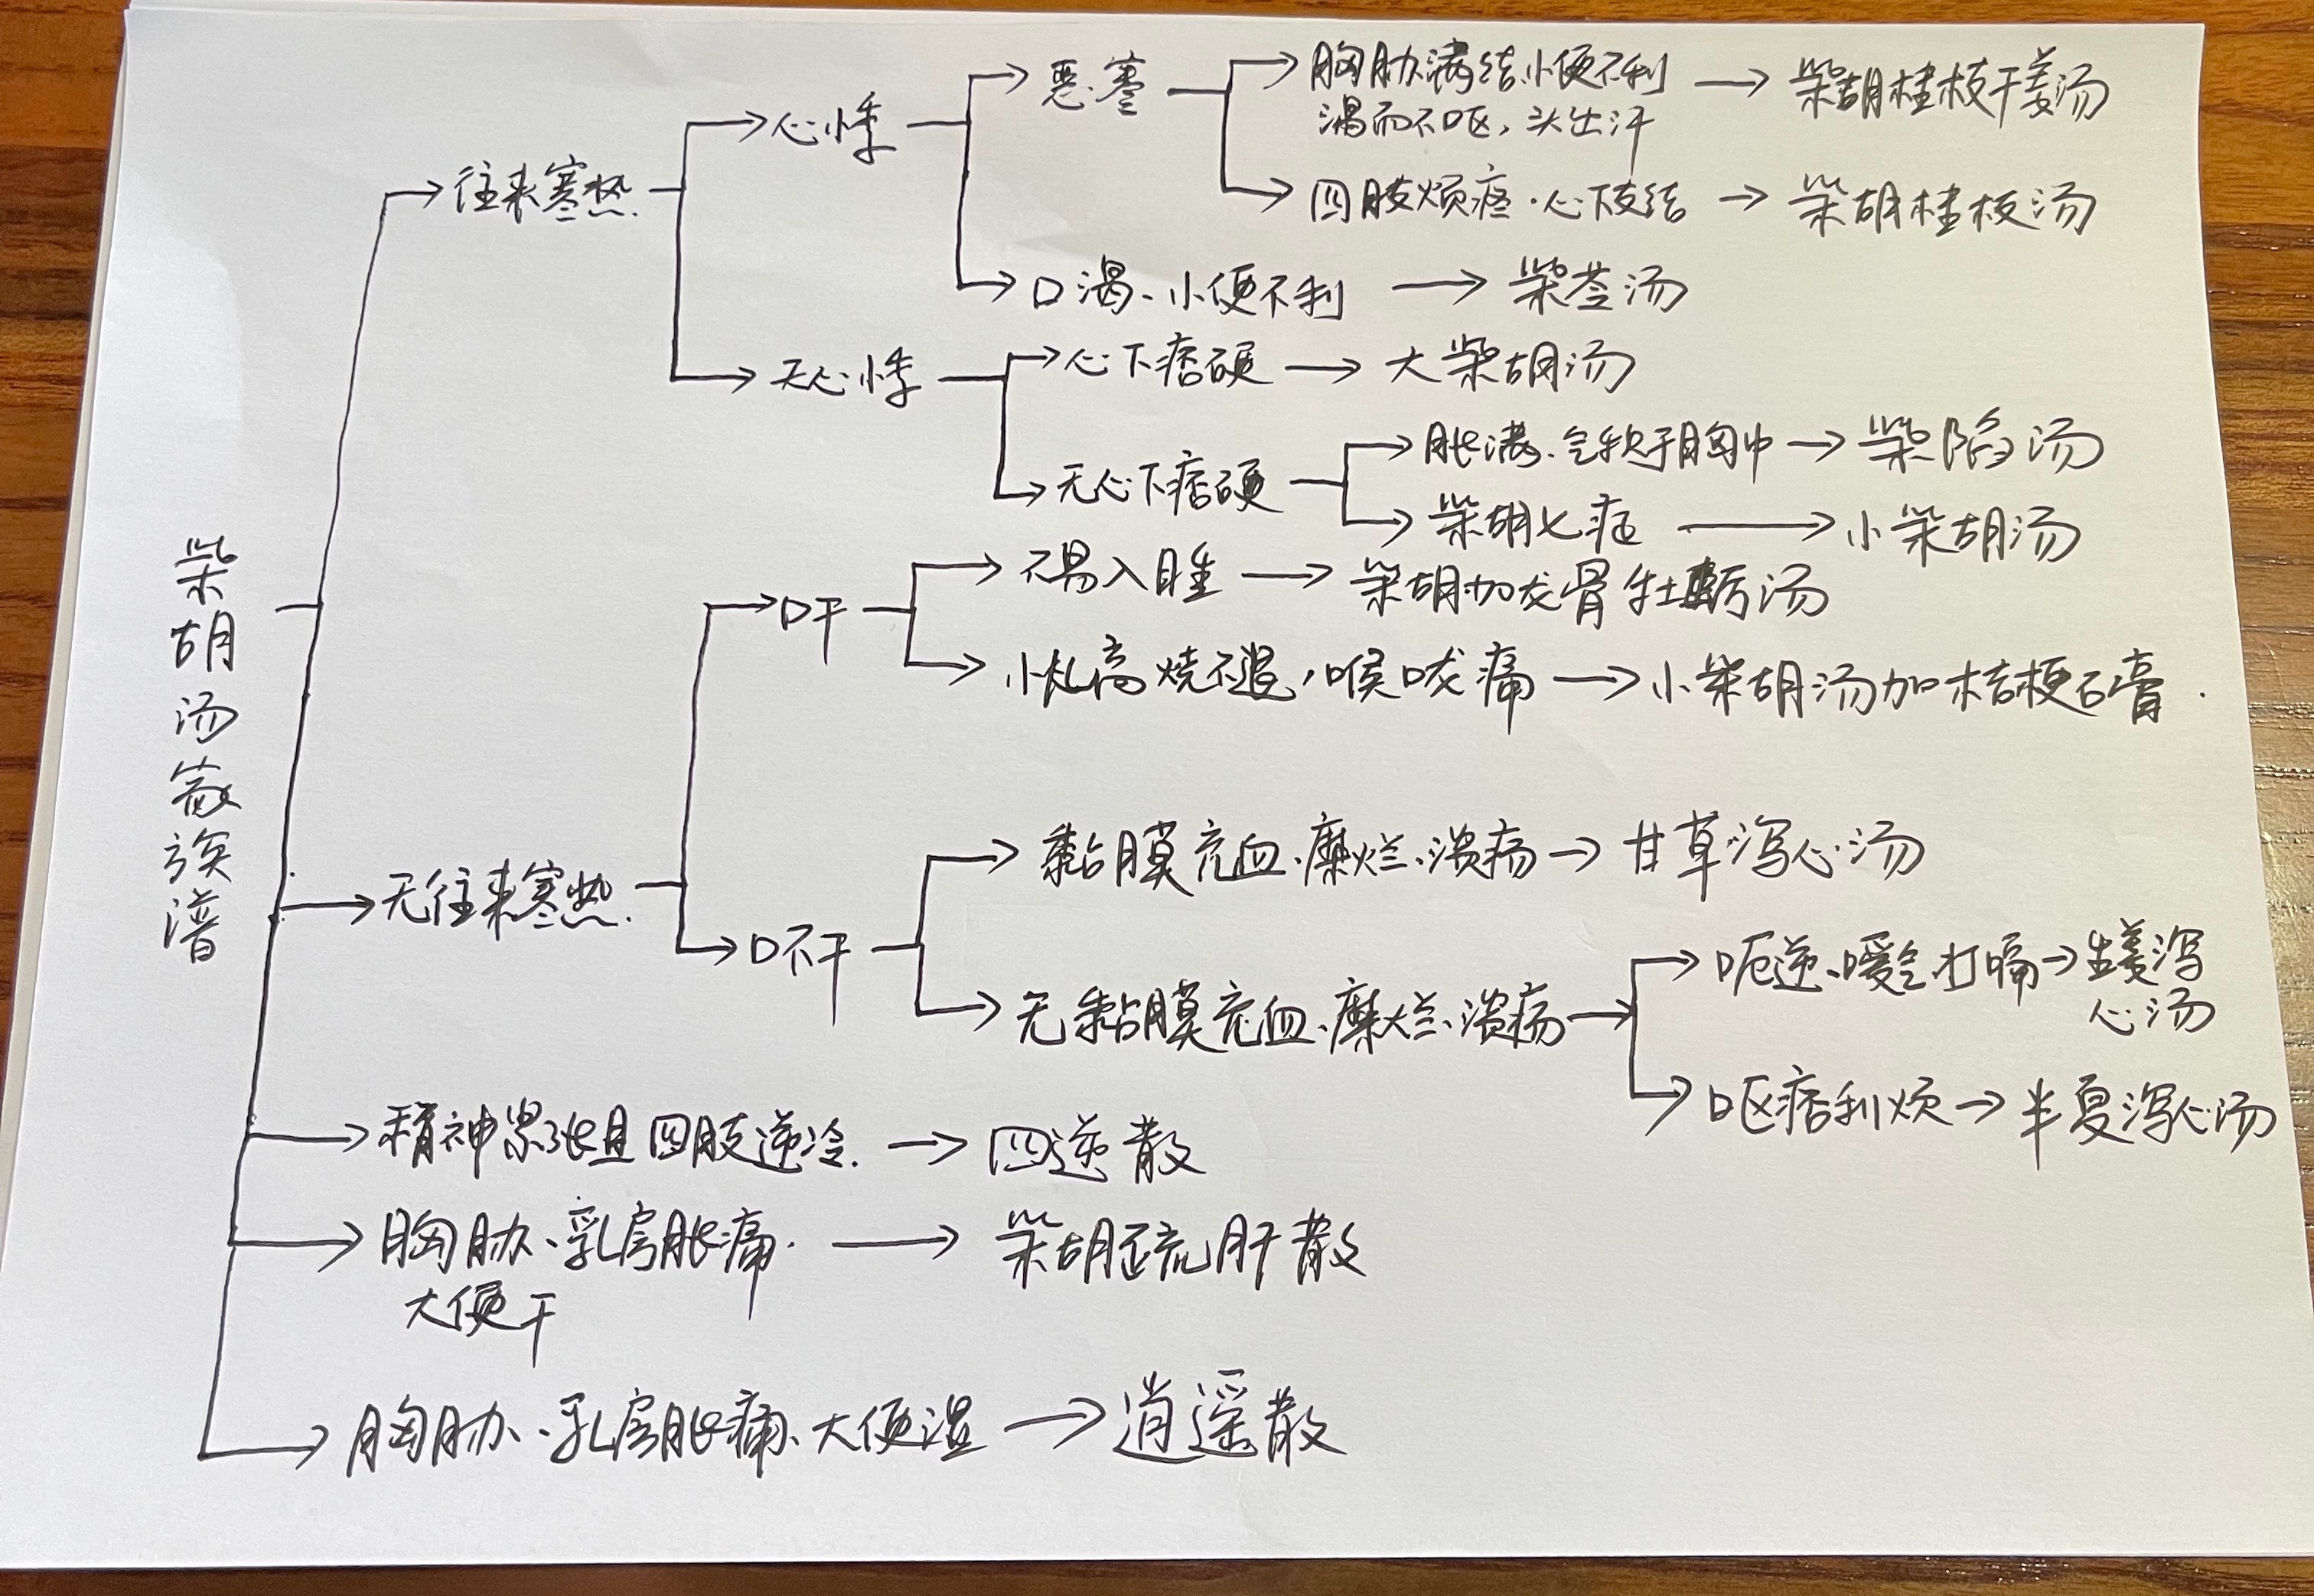 柴胡汤家族谱
往来寒热
心悸
恶寒
胸胁满结、小便不利
渴而不呕，头出汗
柴胡桂枝干姜汤
四肢烦疼、心下支结
柴胡桂枝汤
口渴、小便不利
柴苓汤
无心悸
心下痞硬
大柴胡汤
无心下痞硬
胀满、气积于胸中
柴陷汤
柴胡七症
小柴胡汤
无往来寒热
口干
不易入睡
柴胡加龙骨牡蛎汤
小儿高烧不退，喉咙痛
小柴胡汤加桔梗石膏
口不干
黏膜充血、糜烂、溃疡
甘草泻心汤
无黏膜充血、糜烂、溃疡
呃逆、嗳气打嗝
生姜泻
心汤
呕痞利烦
半夏泻心汤
精神紧张且四肢逆冷
四逆散
胸胁、乳房胀痛
大便干
柴胡疏肝散
胸胁、乳房胀痛、大便湿
逍遥散